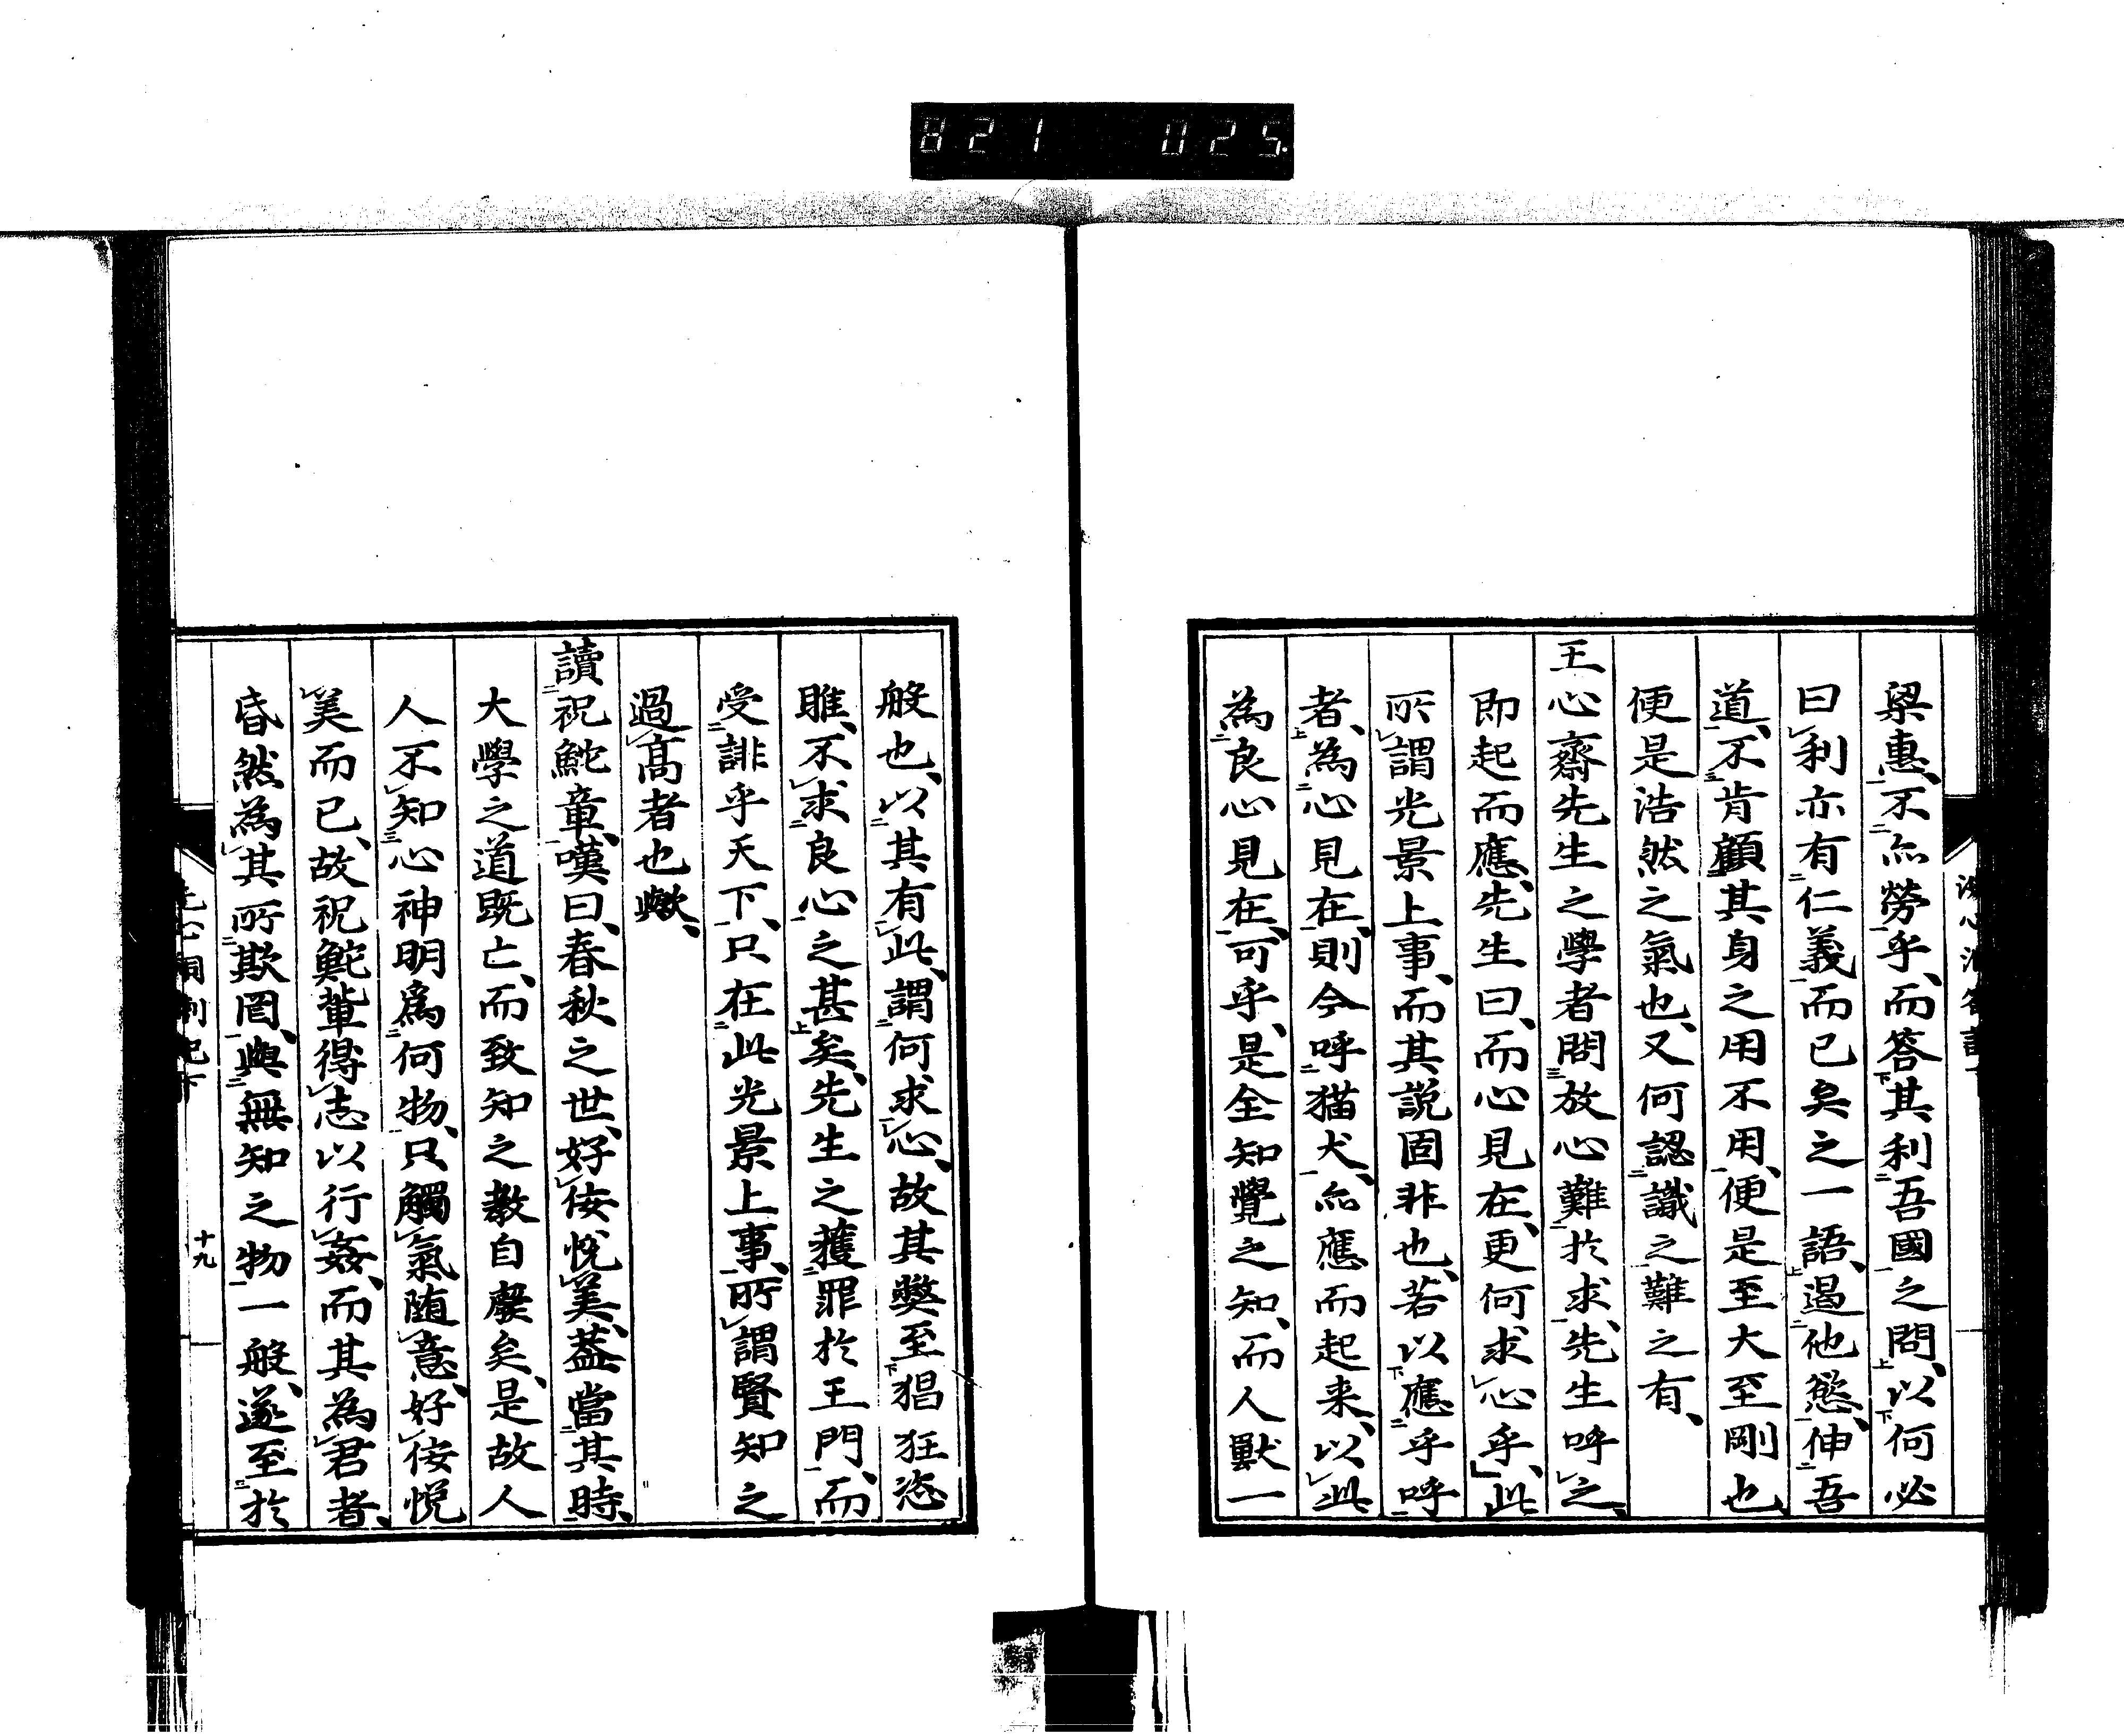 821 025
梁惠、不亦勞乎、而答其利吾國之問、以何必
曰利亦有仁義而已矣之一語、遏他慾、伸吾
道、不肯顧其身之用不用、便是至大至剛也、
便是浩然之氣也、又何認識之難之有、
王心齋先生之學者問放心難於求、先生呼之、
即起而應、先生曰、而心見在、更何求心乎、此
所謂光景上事、而其說固非也、若以應乎呼
者、為心見在、則今呼猫犬、亦應而起来、以此
為良心見在、可乎、是全知覺之知、而人獸一
般也、以其有此、謂何求心、故其獘至猖狂恣
睢、不求良心之甚矣、先生之獲罪於王門、而
受誹乎天下、只在此光景上事、所謂賢知之
過高者也歟、
讀祝鮀章、嘆曰、春秋之世、好佞悅美、蓋當其時、
大學之道既亡、而致知之教自廢矣、是故人
人不知心神明為何物、只觸氣随意、好佞悅
美而已、故祝鮀輩得志以行姦、而其為君者、
昏然為其所欺罔、與無知之物一般、遂至於
十九